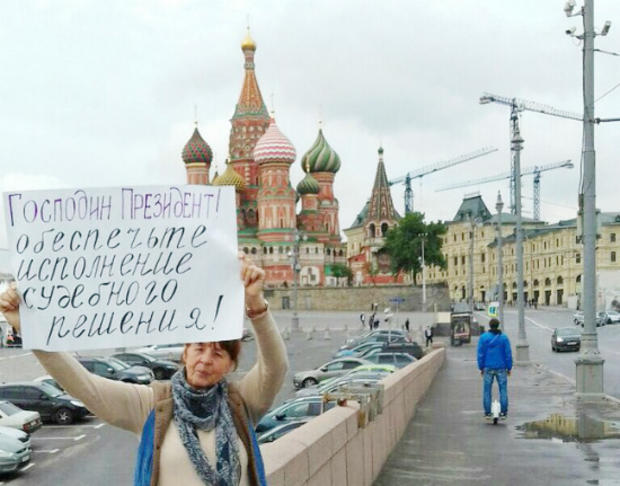 Господин Президент!
обеспечьте
исполнение
судебного
решения!